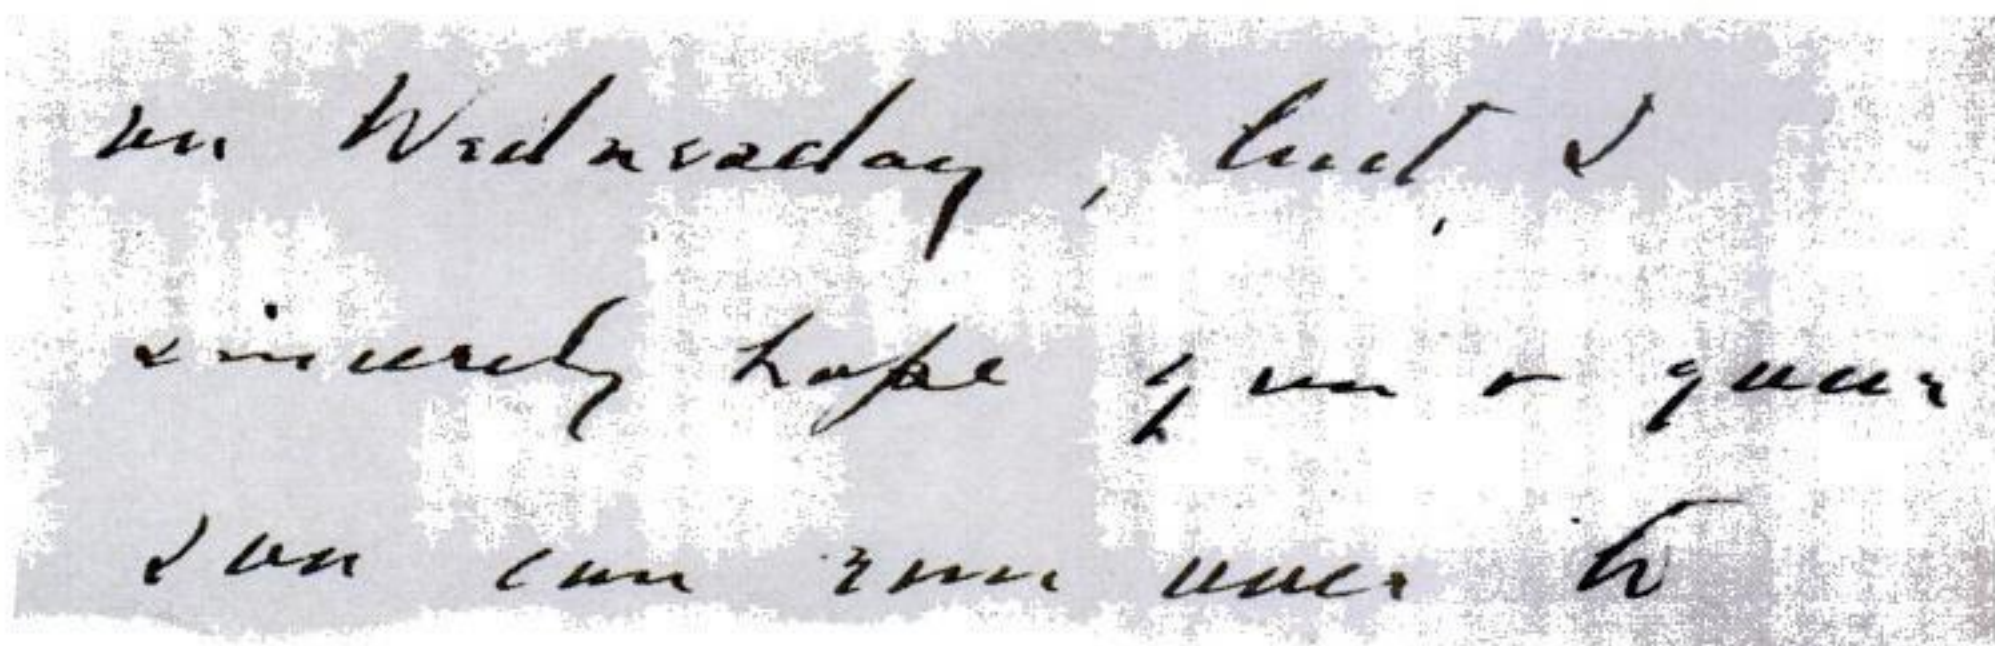 on Wednesday, but I
sincerely hope you & your
son can run over to